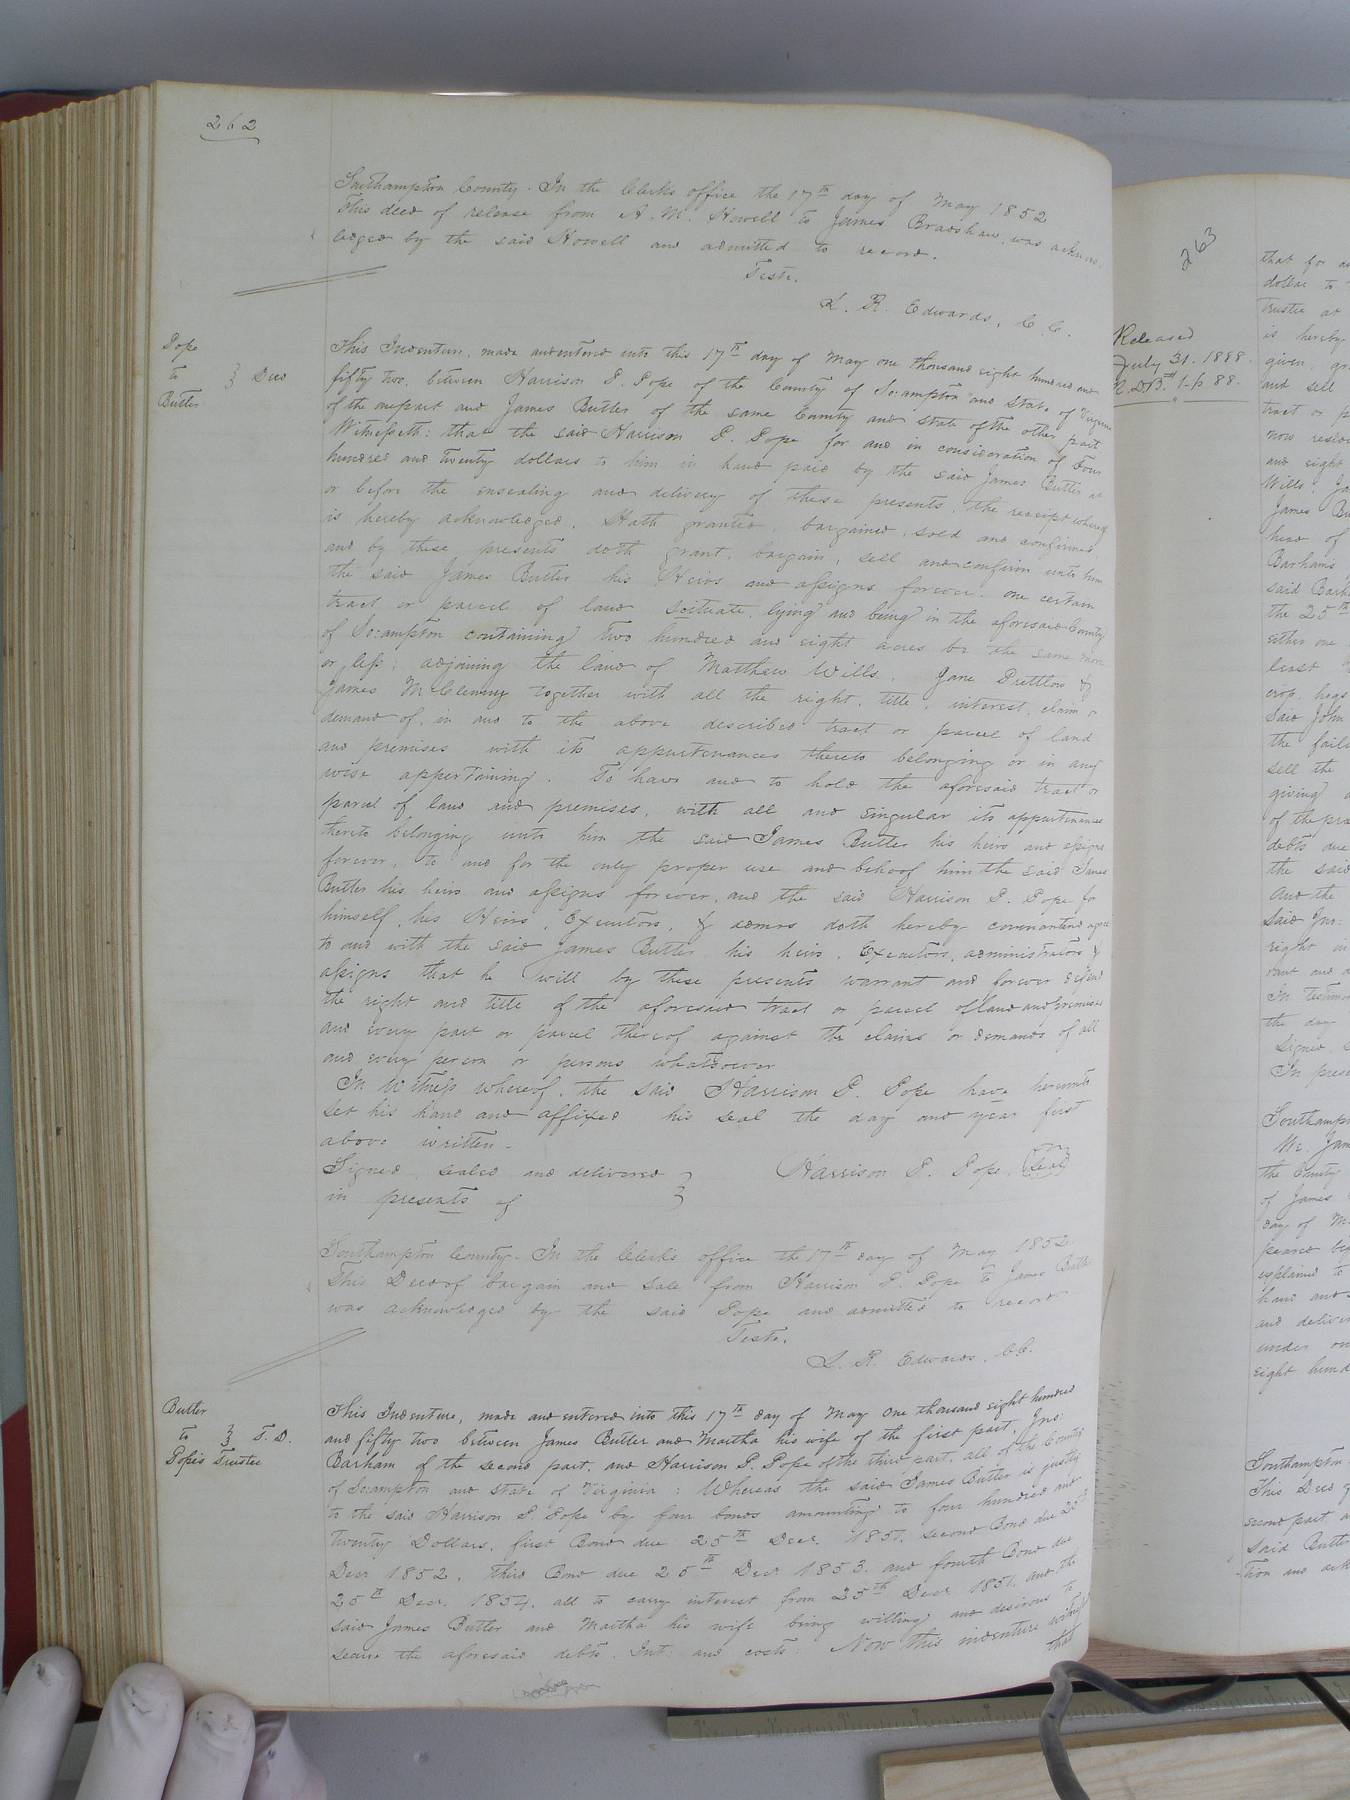 262
Southampton County. In the Clerks office the 17th day of May 1852
This deed of release from A. M. Howell to James Bradshaw, was acknow-
ledged by the said Howell and admitted to record.
Teste.
L. R. Edwards, C C.
Pope
to } Deed
Butler
This Indenture, made and entered into this 17th day of May one thousand eight hundred and
fifty two, between Harrison P. Pope of the County of So:ampton and State of Virginia
of the one part and James Butler of the same County and State of the other part
Witnesseth: that the said Harrison P. Pope for and in consideration of Four
hundred and twenty dollars to him in hand paid by the said James Butler at
or before the ensealing and delivery of these presents, the receipt whereof
is hereby acknowledged. Hath granted, bargained, sold and confirmed
and by these presents doth grant, bargain, sell and confirm unto him
the said James Butler his Heirs and assigns forever: one certain
tract or parcel of land scituate, lying and being in the aforesaid County
of So:ampton containing two hundred and eight acres be the same more
or less; adjoining the land of Matthew Wills. Jane Drettlow &
James McClenny together with all the right, title, interest, claim or
demand of, in and to the above described tract or parcel of land
and premises with its appurtenances thereto belonging or in any
wise appertaining. To have and to hold the aforesaid tract or
parcel of land and premises, with all and singular its appurtenances
thereto belonging unto him the said James Butler his heirs and assigns
forever, to and for the only proper use and behoof him the said James
Butler his heirs and assigns forever, and the said Harrison P. Pope for
himself, his Heirs, Executors, & admrs doth hereby covenant and agree
to and with the said James Butler his heirs, Executors, administrators &
assigns that he will by these presents warrant and forever defend
the right and title of the aforesaid tract or parcel of land and premises
and every part or parcel thereof against the claims or demands of all
and every person or persons whatsoever
In Witness whereof, the said Harrison P. Pope have hereunto
set his hand and affixed his seal the day and year first
above written.
Signed, sealed and delivered } Harrison P. Pope. Seal
in presents of
Southampton County. In the Clerks office the 17th day of May 1852
This Deed of bargain and sale from Harrison P. Pope to James Butler
was acknowledged by the said Pope and admitted to record
Teste.
L. R. Edwards, CC.
Butler
to } T. D.
Pope's Trustee
This Indenture, made and entered into this 17th day of May One thousand eight hundred
and fifty two between James Butler and Martha his wife of the first part, Jno:
Barham of the second part, and Harrison P. Pope of the third part, all of the County
of So:ampton and State of Virginia: Whereas the said James Butler is justly
to the said Harrison P. Pope by four bonds amounting to four hundred and
twenty Dollars, first Bond due 25th Decr. 1851. second Bond due 25th
Decr 1852, third Bond due 25th Decr 1853. and fourth Bond due
25th Decr. 1854. all to carry interest from 25th Decr 1851. and the
said James Butler and Martha his wife being willing and desirous to
secure the aforesaid debts. Int: and costs. Now this indenture witness
that
263
Released
July 31. 1888.
that for
dollar to
Trustee
is hereby
given
and sell
tract or
now
and eight
Wills,
James Bu
head of
Barhams
said Bark
the 25th
either one
least
crop, hogs
Said John
the fail
sell the
giving
of the
debts due
the said
And the
said Jno:
right
In testimo
the day
Signed
In prese
Southamp
We, Jam
the County
of James
day of M
explained to
hand and
and deliver
under
eight hund
Southampton
This Deed
second part
said Butler